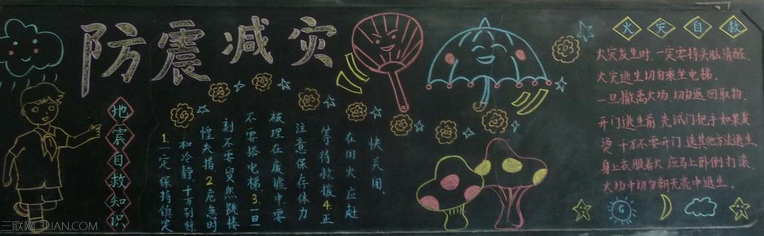 防震减灾
地震自救知识
1.一定保持镇定
和冷静千万别惊
慌失措2.危急时
刻不要贸然跳楼
不要搭电梯.3.一旦
被埋在废墟中要
注意保存体力
等待救援.4.正
在用火应赶
快关闭.
火灾自救
火灾发生时,一定要持头脑清醒.
火灾逃生切勿乘坐电梯.
一旦撤离火场,切勿返回取物.
开门逃生前,先试门把手如果发
烫,千万不要开门,选其他方法逃生.
身上衣服着火,应马上卧倒打滚.
火场中切勿朝光亮中逃生.
三联网 3LIAN.COM